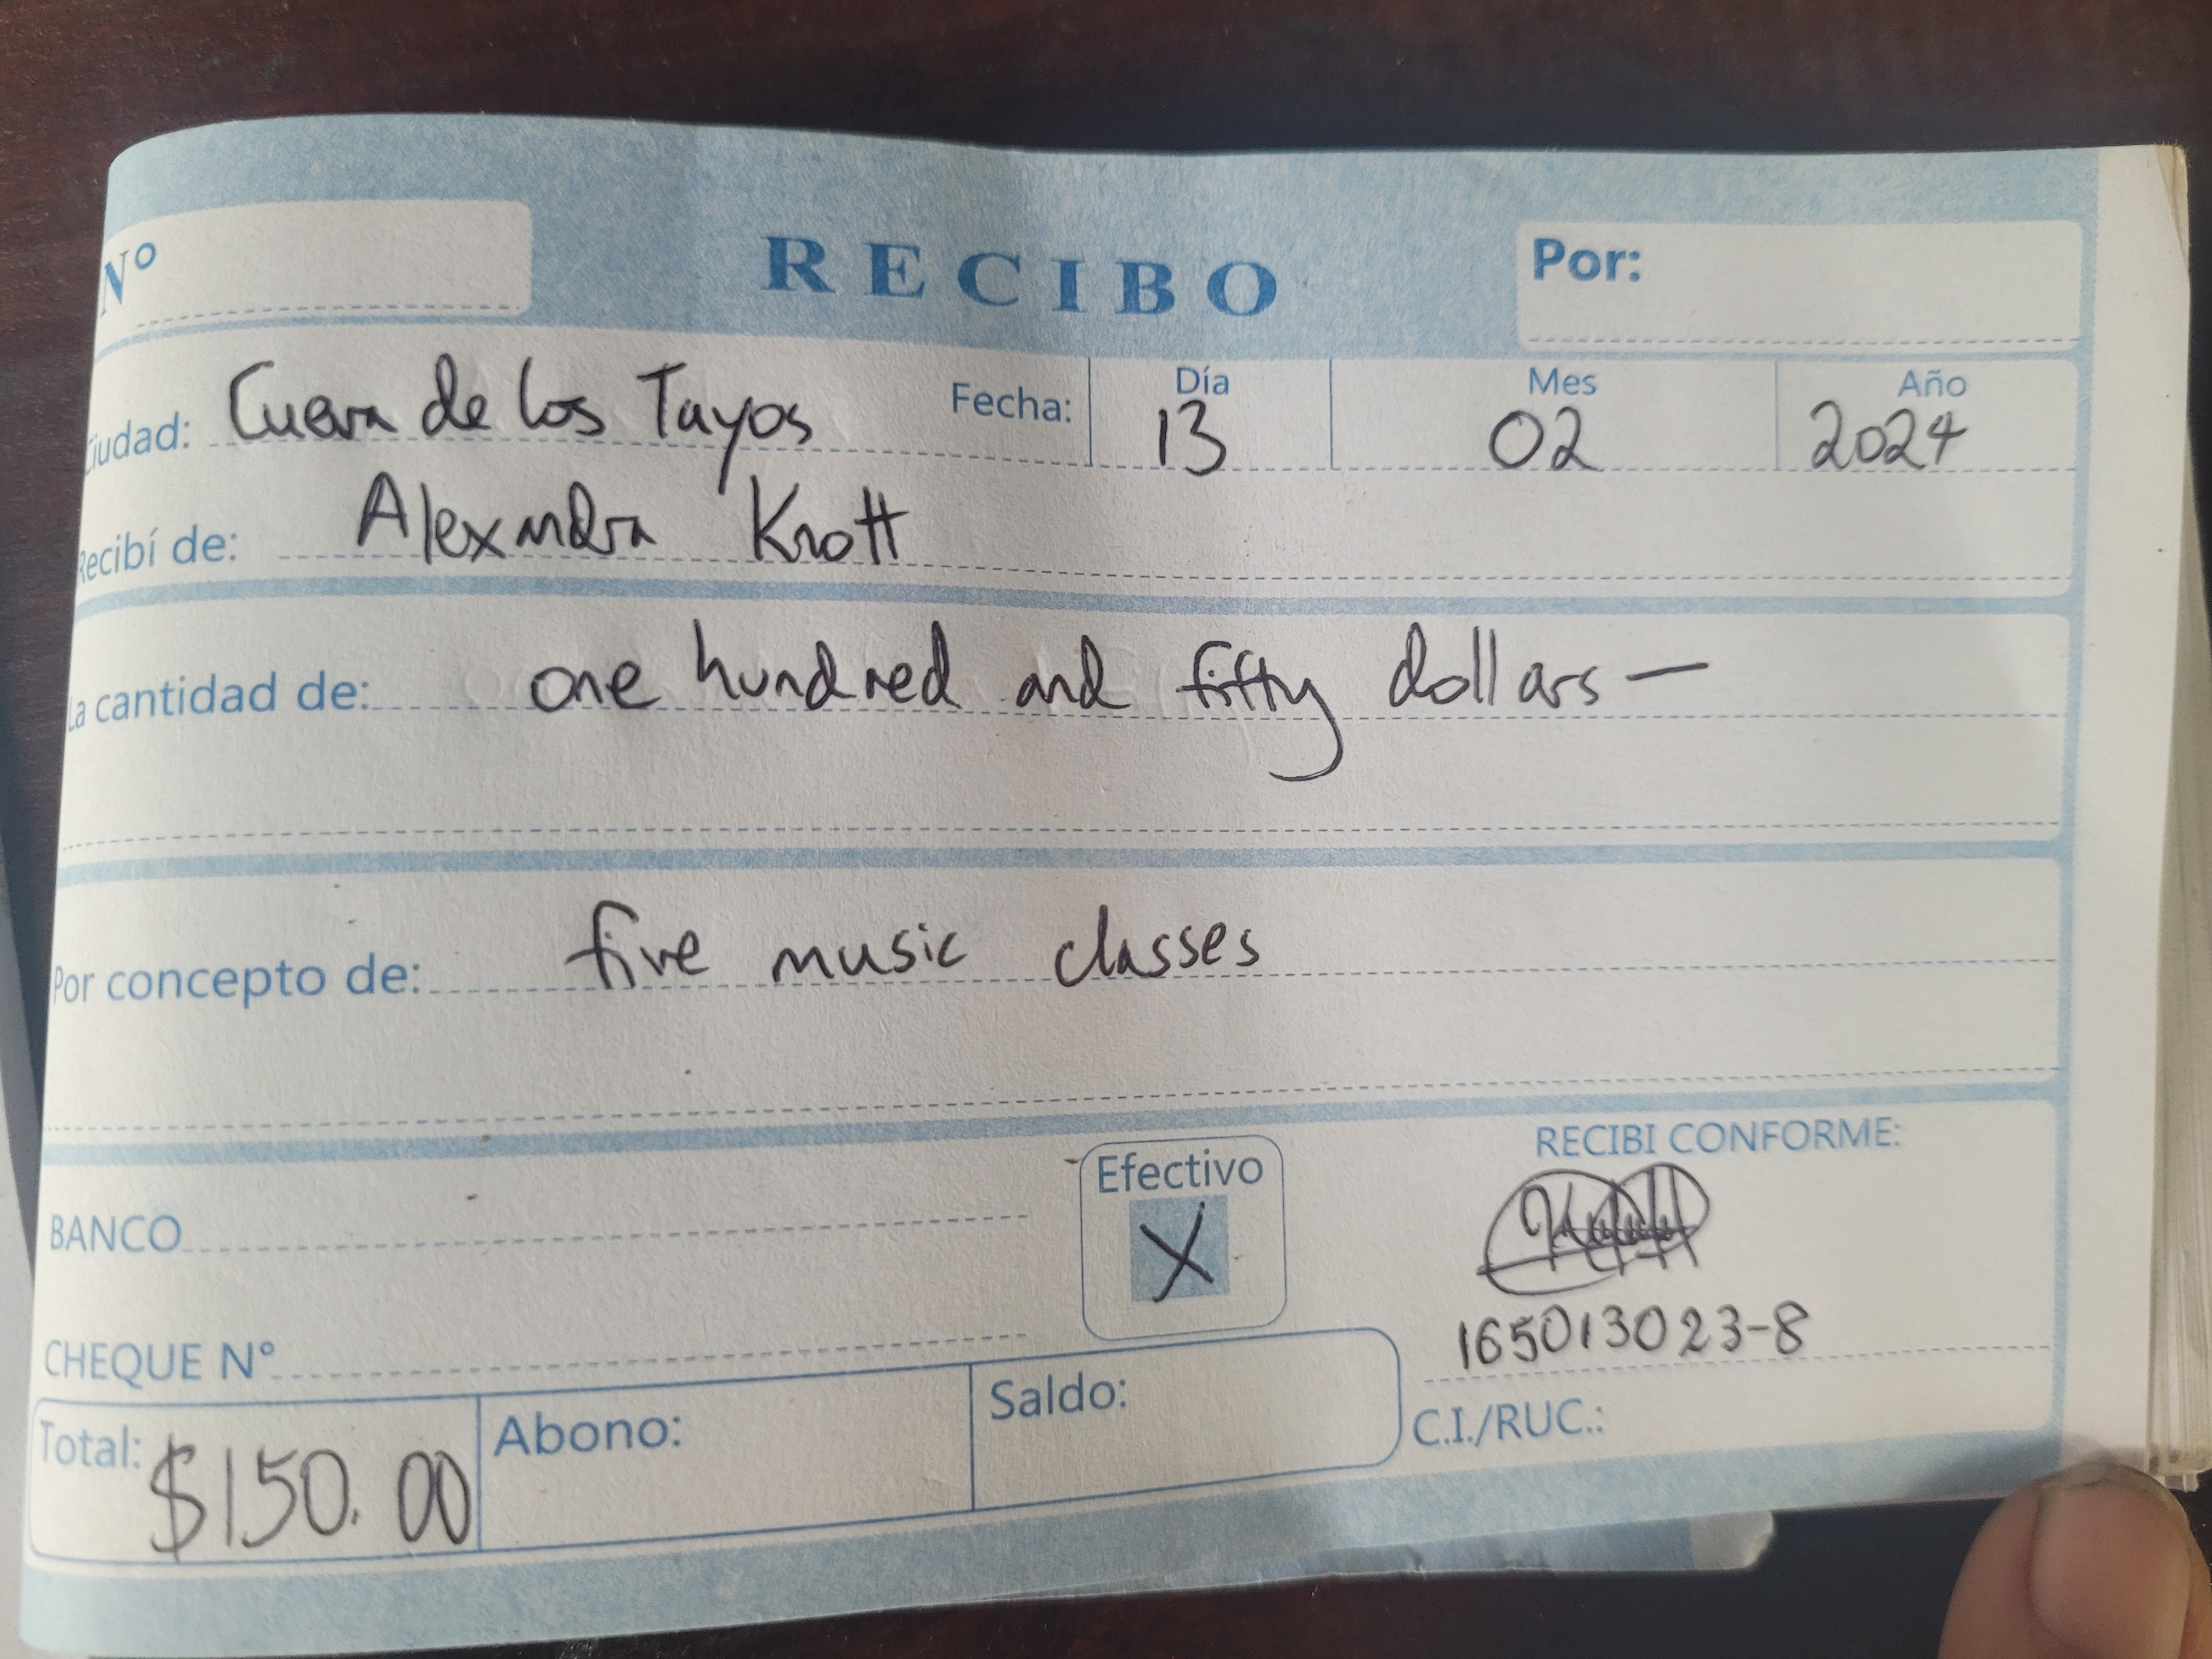 Nº
RECIBO
Por:
Ciudad: Cueva de los Tayos Fecha: Día 13 Mes 02 Año 2024
Recibí de: Alexandra Krott
La cantidad de: one hundred and fifty dollars —
Por concepto de: five music classes
BANCO
Efectivo X
RECIBI CONFORME:
165013023-8
CHEQUE Nº
Total: $150.00 Abono: Saldo: C.I./RUC.: